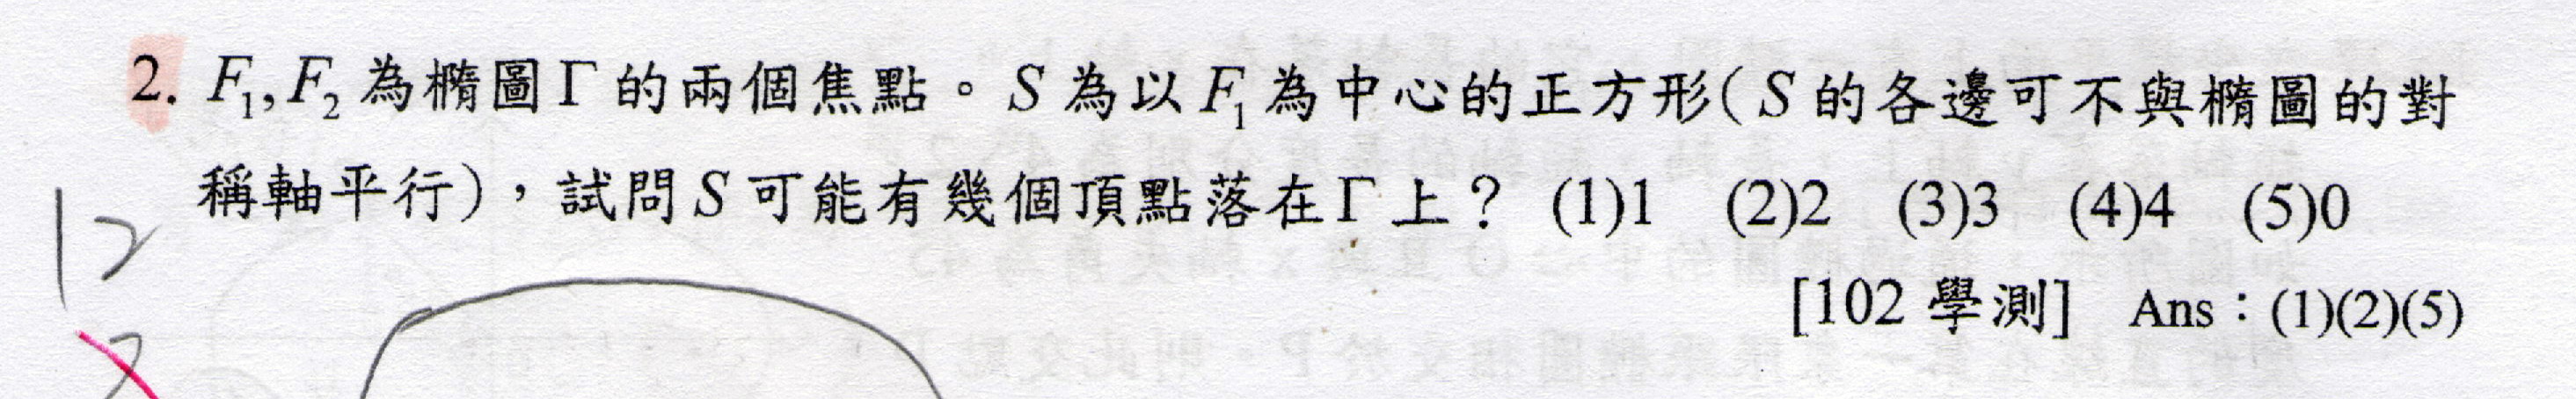 2. F₁, F₂ 為橢圓 Γ 的兩個焦點。S 為以 F₁ 為中心的正方形(S 的各邊可不與橢圓的對
稱軸平行),試問 S 可能有幾個頂點落在 Γ 上? (1)1 (2)2 (3)3 (4)4 (5)0
12
[102 學測] Ans:(1)(2)(5)